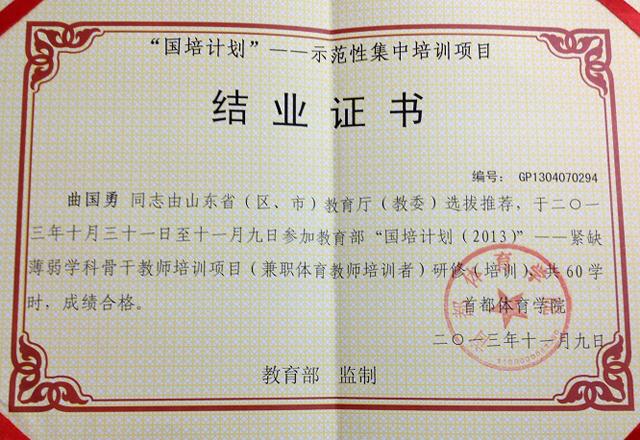 “国培计划”——示范性集中培训项目
结业证书
编号: GP1304070294
曲国勇 同志由山东省（区、市）教育厅（教委）选拔推荐，于二〇一
三年十月三十一日至十一月九日参加教育部“国培计划（2013）”——紧缺
薄弱学科骨干教师培训项目（兼职体育教师培训者）研修（培训），共60学
时，成绩合格。
首都体育学院
首都体育学院
二〇一三年十一月九日
教育部 监制